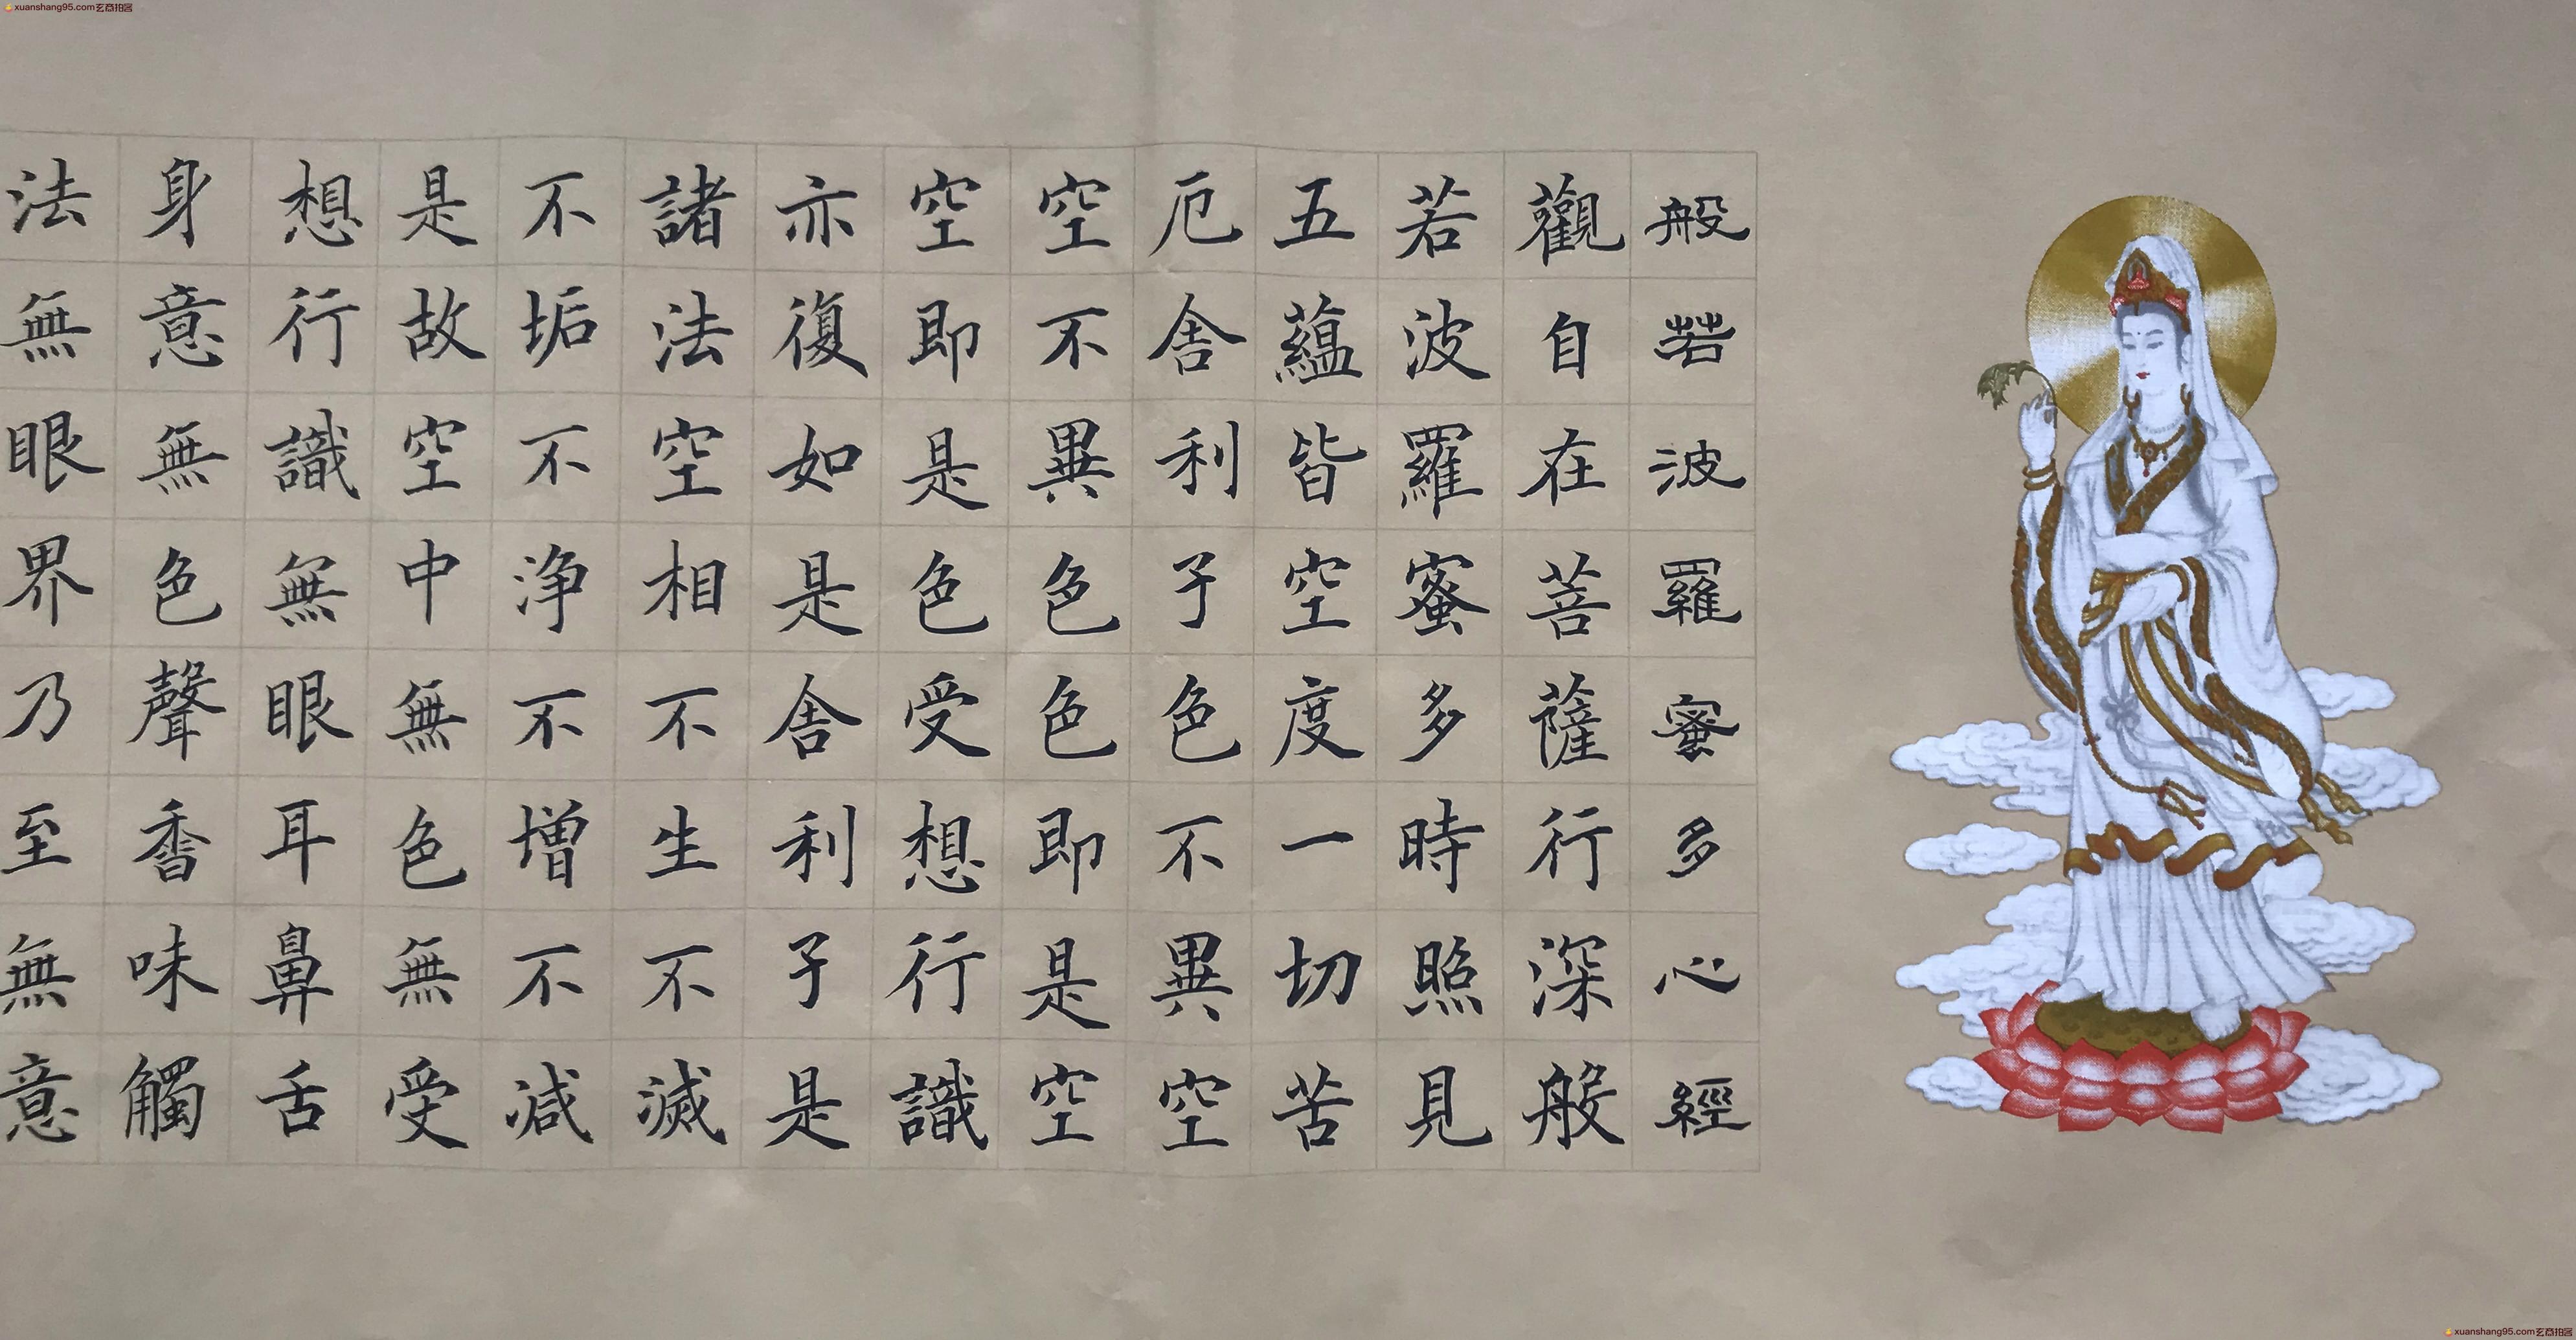 xuanshang95.com玄商拍客
般若波羅蜜多心經
觀自在菩薩行深般
若波羅蜜多時照見
五蘊皆空度一切苦
厄舍利子色不異空
空不異色色即是空
空即是色受想行識
亦復如是舍利子是
諸法空相不生不滅
不垢不浄不增不減
是故空中無色無受
想行識無眼耳鼻舌
身意無色聲香味觸
法無眼界乃至無意
xuanshang95.com玄商拍客